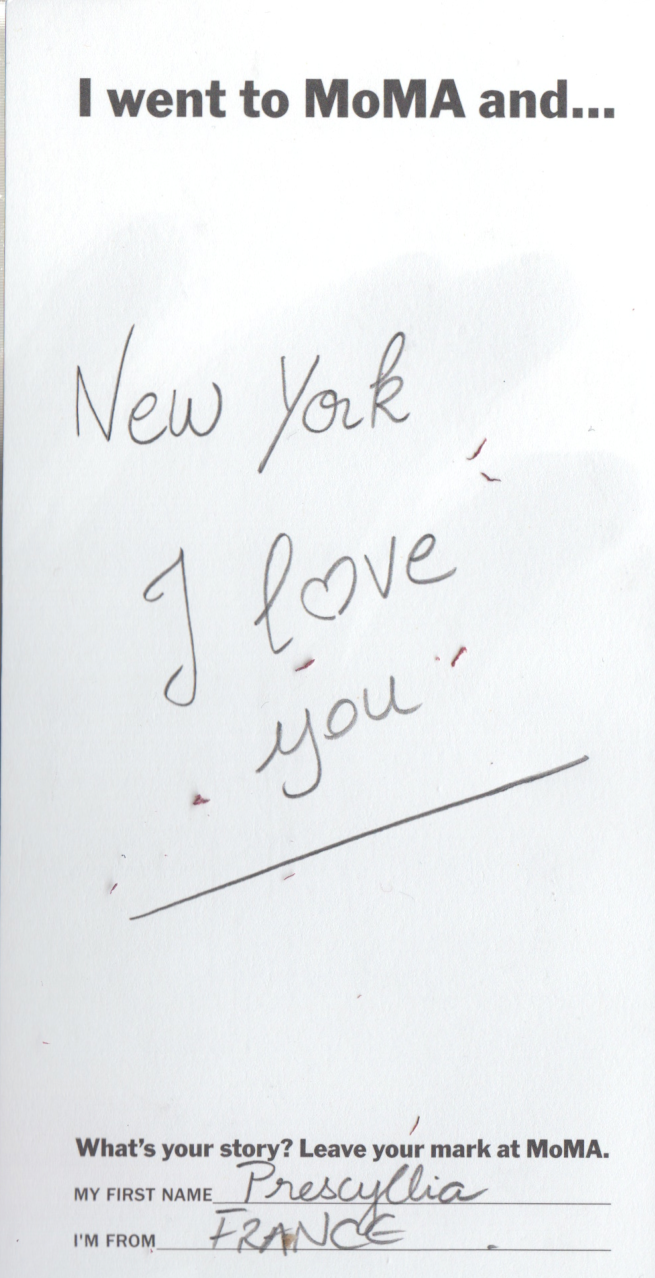 I went to MoMA and...
New York
I love
you
What's your story? Leave your mark at MoMA.
MY FIRST NAME Prescyllia
I'M FROM FRANCE